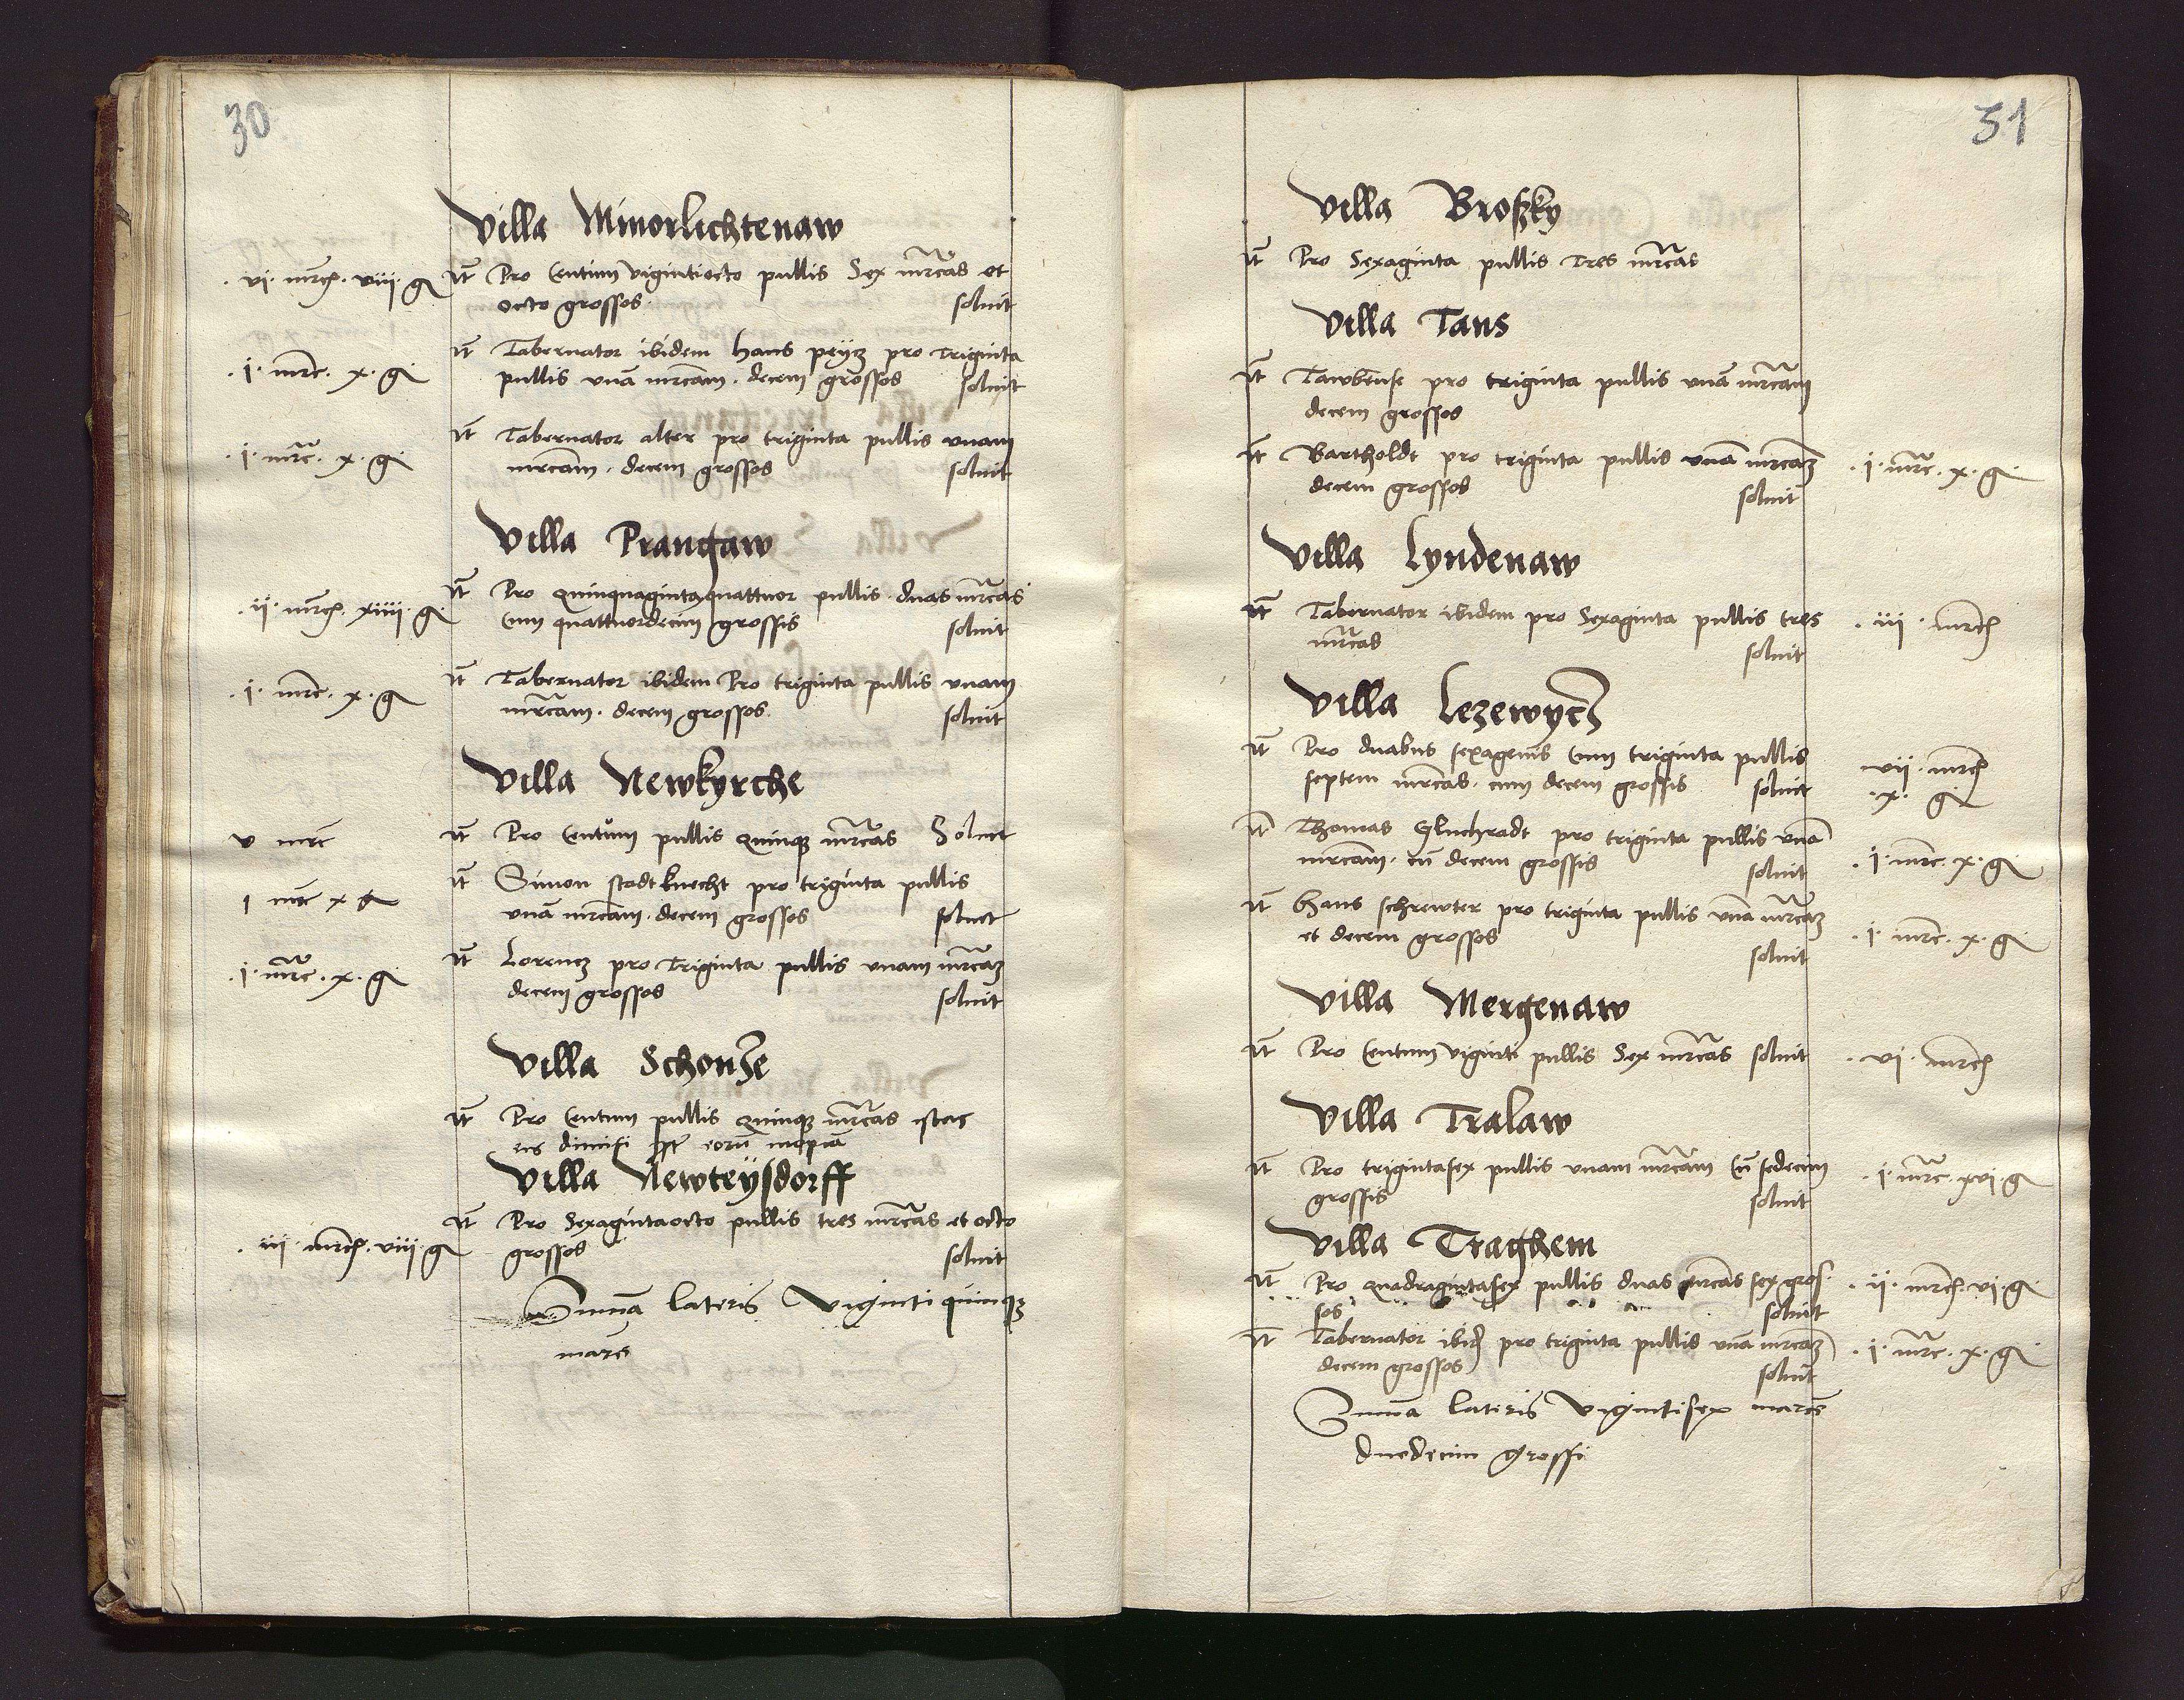 30
Villa Minorlichtenaw
. vi. mrc. viii. g. It Pro Centum vigintiocto pullis Sex mrcas et
octo grossos. soluit
. i. mrc. x. g. It Tabernator ibidem hans peytz pro Triginta
pullis vnā mrcam. decem grossos soluit
. i. mrc. x. g. It Tabernator alter pro triginta pullis vnam
mrcam. decem grossos soluit
Villa Prangaw
. ii. mrc. xiiii. g. It Pro Quinquagintaquattuor pullis. duas mrcas
Cum quattuordecim grossis soluit
. i. mrc. x. g. It Tabernator ibidem Pro triginta pullis vnam
mrcam. decem grossos. soluit
Villa Newkyrche
v mrc It Pro Centum pullis Quinqz mrcas Soluit
i mrc x g It Simon stadtknecht pro triginta pullis
vnā mrcam. decem grossos soluit
. i. mrc. x. g. It Lorencz pro Triginta pullis vnam mrcaz
decem grossos soluit
Villa Schonsze
It Pro Centum pullis Quinqz mrcas istas
eis dimisi ꝓpter eorū inopiā
Villa Newteysdorff
. iii. mrc. viii. g. It Pro Sexagintaocto pullis tres mrcas et octo
grossos soluit
Summa lateris Viginti quinqz
marcs
31
Villa Broszky
It Pro Sexaginta pullis Tres mrcas
Villa Tans
It Tawbense pro triginta pullis vnā mrcam
decem grossos
It Bartholdt pro triginta pullis vnā mrcaz . i. mrc. x. g.
decem grossos soluit
Villa Lyndenaw
It Tabernator ibidem pro Sexaginta pullis tres . iii. mrc
mrcas soluit
Villa Lezewycz
It Pro duabus sexagenis Cum triginta pullis vii. mrc
septem mrcas. cum decem grossis soluit . x. g.
It Thomas Gluchradt pro triginta pullis vnā
mrcam. cū decem grossis soluit . i. mrc. x. g.
It Hans schrewter pro triginta pullis vnā mrcaz
et decem grossos soluit . i. mrc. x. g.
Villa Mergenaw
It Pro Centum viginti pullis Sex mrcas soluit . vi. mrc
Villa Tralaw
It Pro trigintasex pullis vnam mrcam Cū sedecim . i. mrc. xvi. g.
grossis soluit
Villa Traghem
It Pro Quadragintasex pullis duas mrcas sex gros . ii. mrc. vi. g.
sos soluit
It Tabernator ibidē pro triginta pullis vnā mrcaz . i. mrc. x. g.
decem grossos soluit
Summa lateris Vigintisex marcs
duodecim grossi